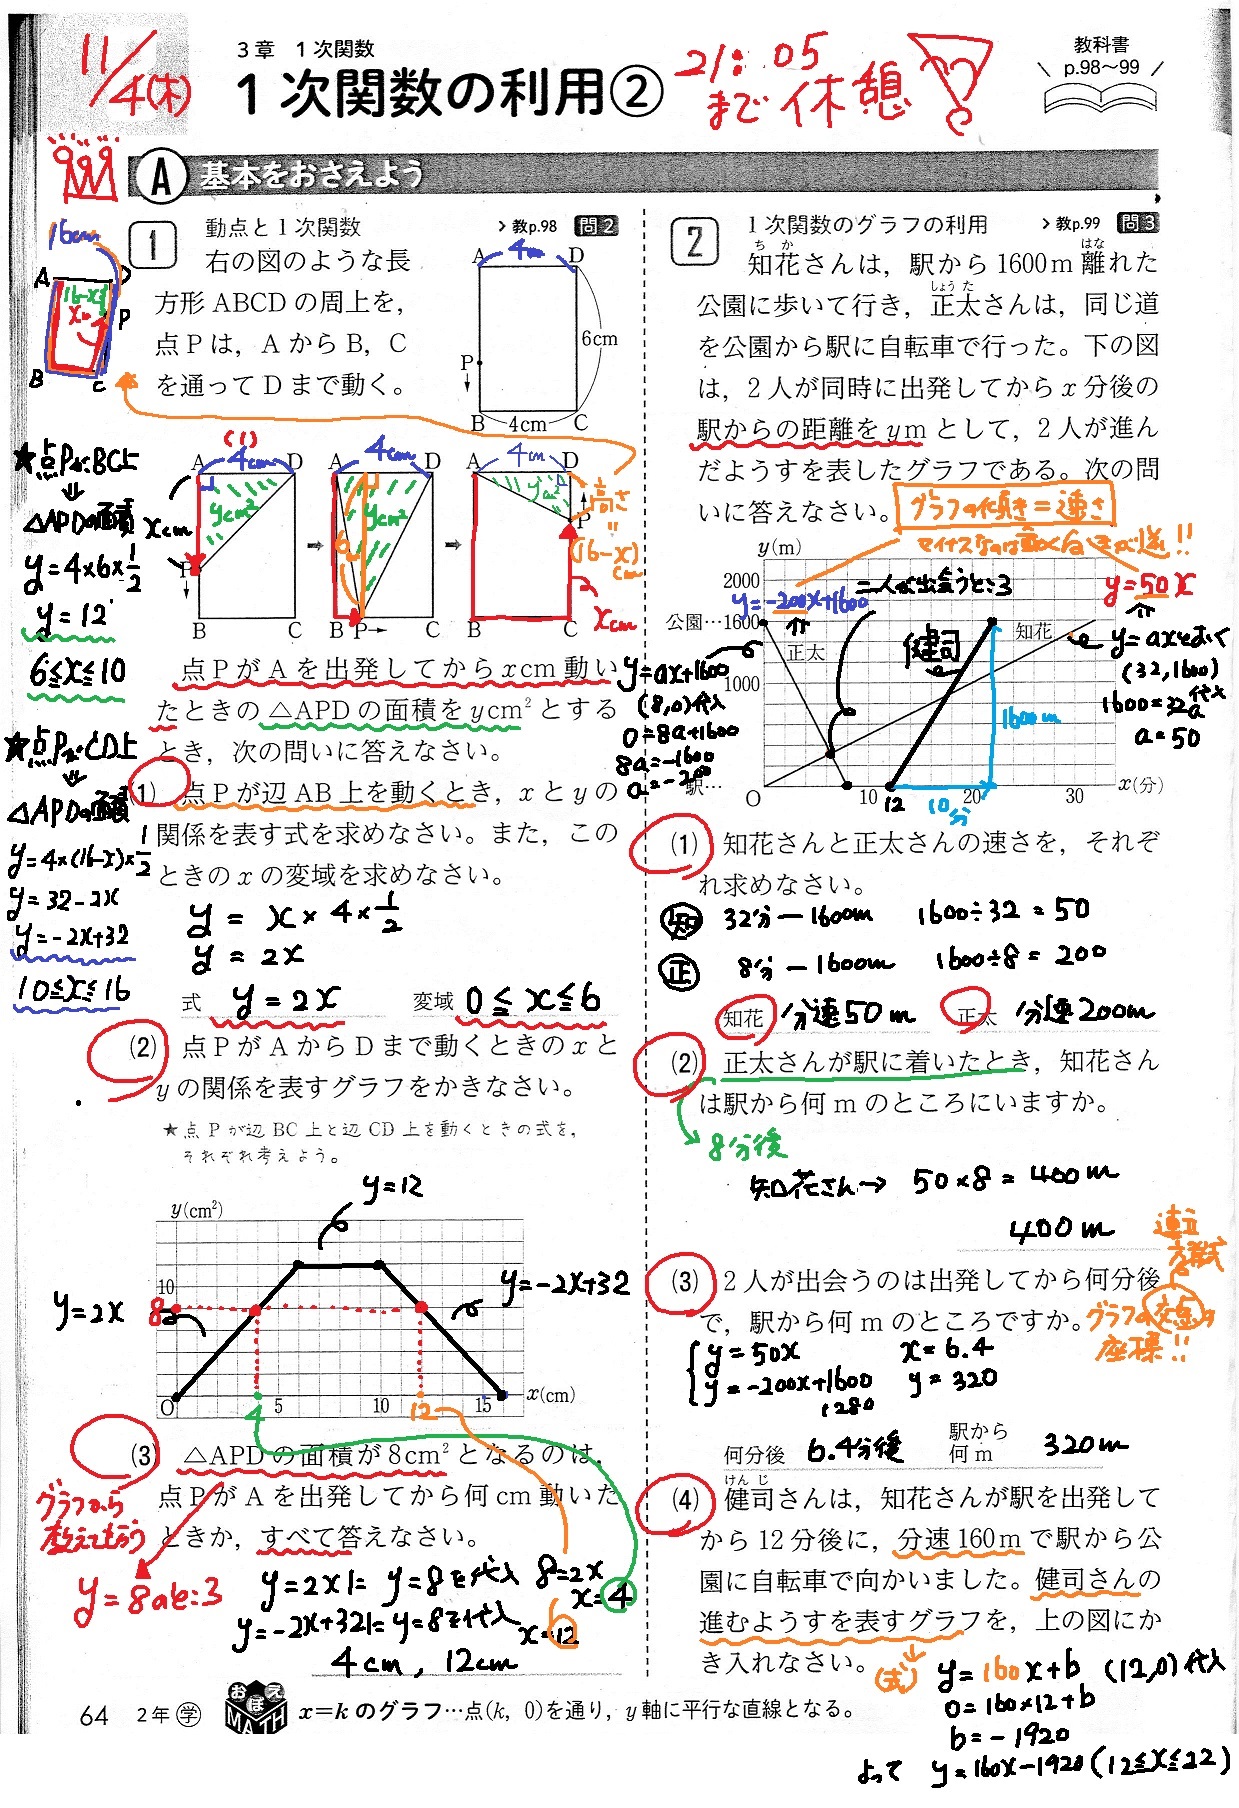 11/4(木)
3章 1次関数
1次関数の利用②
21:05
まで休憩
教科書
p.98〜99
A 基本をおさえよう
1 動点と1次関数 >教p.98 問2
右の図のような長
方形ABCDの周上を，
点Pは，AからB，C
を通ってDまで動く。
A 4cm D
6cm
P
B 4cm C
16cm
A D
16-x
x
P
B C
(1)
A 4cm D
xcm
ycm²
P
B C
A 4cm D
6
ycm²
B P C
A 4cm D
ycm²
高さ
P
(16-x)
cm
B C xcm
★点PがBC上
⇓
△APDの面積
y=4×6×1/2
y=12
6≦x≦10
★点PがCD上
⇓
△APDの面積
y=4×(16-x)×1/2
y=32-2x
y=-2x+32
10≦x≦16
点PがAを出発してからxcm動い
たときの△APDの面積をycm²とする
とき，次の問いに答えなさい。
(1) 点Pが辺AB上を動くとき，xとyの
関係を表す式を求めなさい。また，この
ときのxの変域を求めなさい。
y = x×4×1/2
y = 2x
式 y=2x 変域 0≦x≦6
(2) 点PがAからDまで動くときのxと
yの関係を表すグラフをかきなさい。
★点Pが辺BC上と辺CD上を動くときの式を，
それぞれ考えよう。
y=12
y(cm²)
10
8
y=2x
y=-2x+32
O 4 5 10 12 15 x(cm)
(3) △APDの面積が8cm²となるのは，
点PがAを出発してから何cm動いた
ときか，すべて答えなさい。
グラフから
教えてもらう
y=8のとき
y=2xに y=8を代入 8=2x
x=4
y=-2x+32に y=8を代入 x=12
4cm, 12cm
2 1次関数のグラフの利用 >教p.99 問3
ち か はな
知花さんは，駅から1600m離れた
しょう た
公園に歩いて行き，正太さんは，同じ道
を公園から駅に自転車で行った。下の図
は，2人が同時に出発してからx分後の
駅からの距離をymとして，2人が進ん
だようすを表したグラフである。次の問
いに答えなさい。
グラフの傾き=速さ
マイナスなのは動く向きが逆!!
y(m)
2000
公園…1600
1000
駅…
O 10 12 20 30 x(分)
y=-200x+1600
二人が出会うとき
y=50x
正太
健司
知花
1600m
10分
y=ax+1600
(8,0)代入
0=8a+1600
8a=-1600
a=-200
y=axとおく
(32,1600)
代入
1600=32a
a=50
(1) 知花さんと正太さんの速さを，それぞ
れ求めなさい。
知 32分－1600m 1600÷32=50
正 8分－1600m 1600÷8=200
知花 分速50m 正太 分速200m
(2) 正太さんが駅に着いたとき，知花さん
は駅から何mのところにいますか。
8分後
知花さん→ 50×8=400m
400m
(3) 2人が出会うのは出発してから何分後
で，駅から何mのところですか。
連立
方程式
グラフの交点の
座標!!
y=50x x=6.4
y=-200x+1600 y=320
1280
何分後 6.4分後 駅から何m 320m
けん じ
(4) 健司さんは，知花さんが駅を出発して
から12分後に，分速160mで駅から公
園に自転車で向かいました。健司さんの
進むようすを表すグラフを，上の図にか
き入れなさい。
(式) y=160x+b (12,0)代入
0=160×12+b
b=-1920
よって y=160x-1920 (12≦x≦22)
64 2年 学 おぼえMATH x=kのグラフ…点(k, 0)を通り，y軸に平行な直線となる。